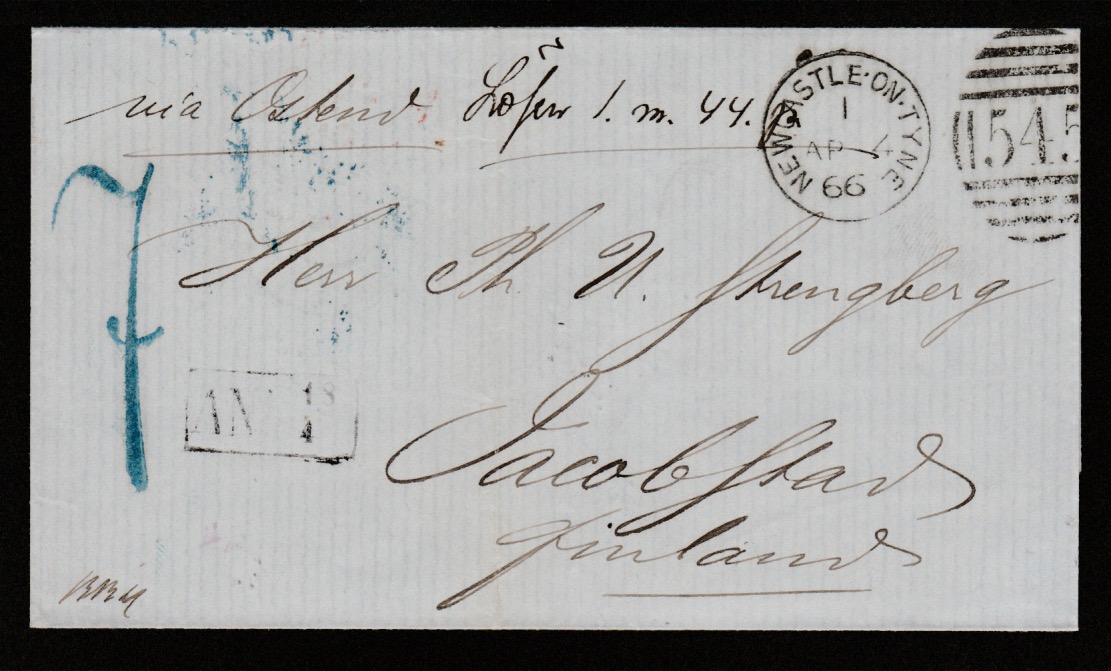 via Ostend Lösen 1. m. 44. p
NEWCASTLE-ON-TYNE
1
AP 4
66
545
7
Herr Ph. U. Strengberg
AN 18
1
Jacobstad
Finland